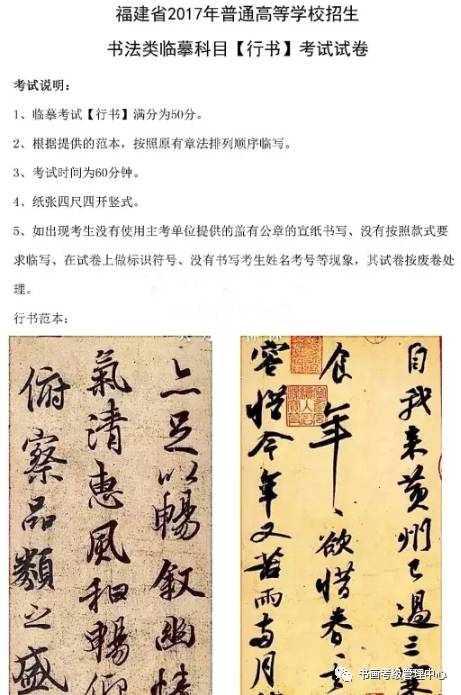 福建省2017年普通高等学校招生
书法类临摹科目【行书】考试试卷
考试说明：
1、临摹考试【行书】满分为50分。
2、根据提供的范本，按照原有章法排列顺序临写。
3、考试时间为60分钟。
4、纸张四尺四开竖式。
5、如出现考生没有使用主考单位提供的盖有公章的宣纸书写、没有按照款式要
求临写、在试卷上做标识符号、没有书写考生姓名考号等现象，其试卷按废卷处
理。
行书范本：
亦足以暢叙幽情
氣清惠風和暢仰
俯察品類之盛
自我来黄州已過三
食年、欲惜春
容惜今年又苦雨兩月
书画考级管理中心